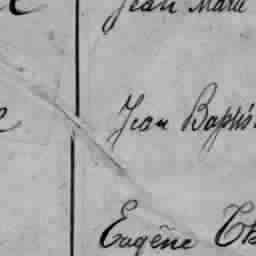 Jean Marie
Jean Baptis
Eugène